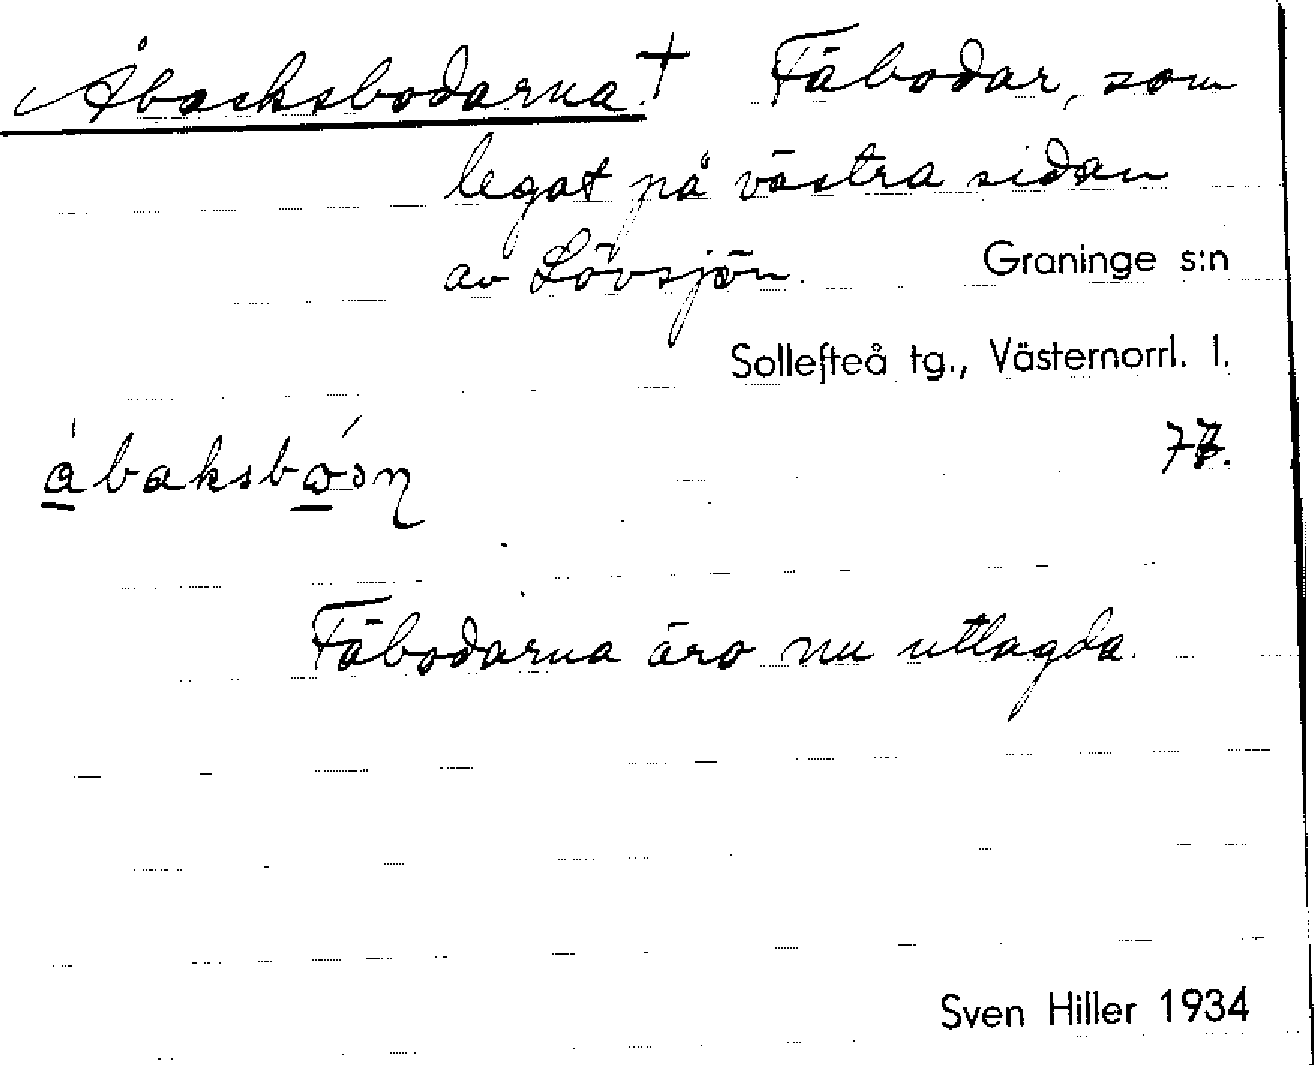 Åbacksbodarna † Fäbodar, som
legat på västra sidan
av Lövsjön.
Graninge s:n
Sollefteå tg., Västernorrl. l.
åbaksbo
Fäbodarna äro nu utlagda.
Sven Hiller 1934